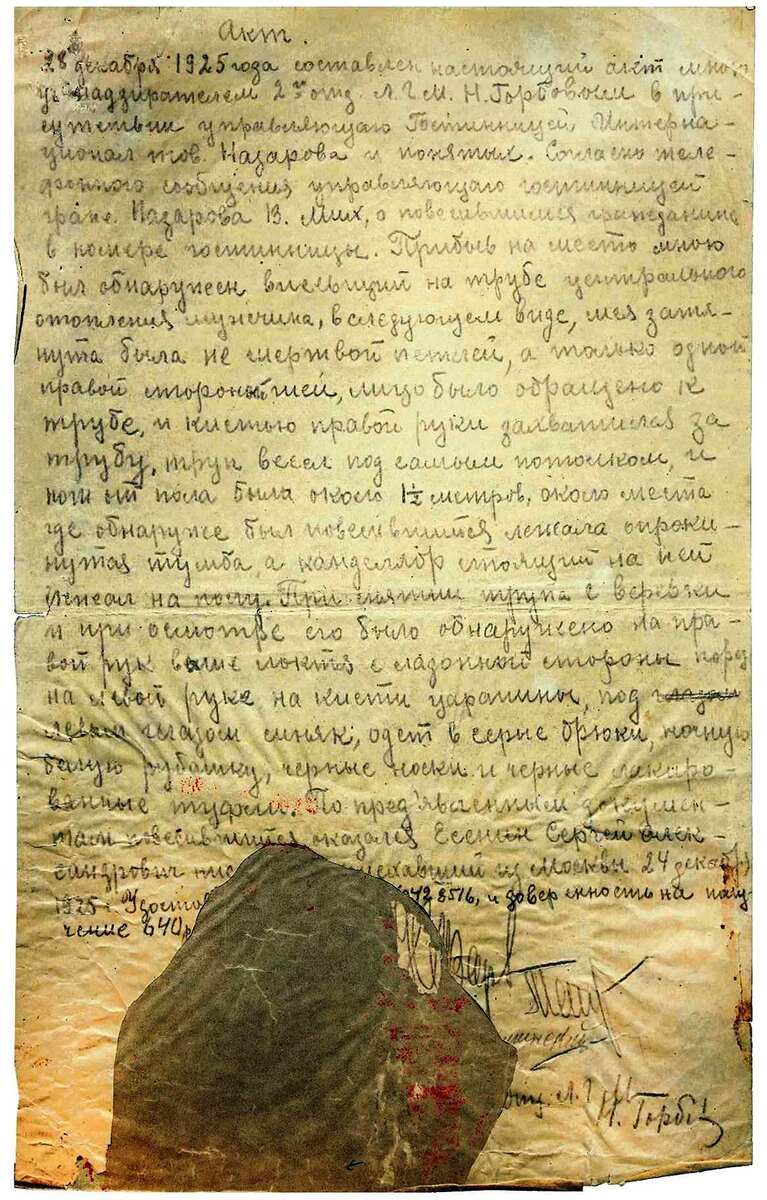 Акт.
28 декабря 1925 года составлен настоящий акт мною
уч. надзирателем 2го отд. Л.Г.М. Н. Горбовым в при-
сутствии управляющаго Гостинницей Интерна-
ционал тов. Назарова и понятых. Согласно теле-
фонного сообщения управляющаго гостинницей
гражд. Назарова В. Мих, о повесившимся гражданине
в номере гостинницы. Прибыв на место мною
был обнаружен висевший на трубе центрального
отопления мужчина, в следующем виде, шея затя-
нута была не мертвой петлей, а только одной
правой стороной шеи, лицо было обращено к
трубе, и кистью правой руки захватился за
трубу, труп весел под самым потолком, и
ноги от пола была около 1½ метров, около места
где обнаруже был повесившийся лежала опроки-
нутая тумба, а канделябр стоящий на ней
лежал на полу. При снятии трупа с веревки
и при осмотре его было обнаружено на пра-
вой рук выше локтя с ладонной стороны порез
на левой руке на кисти царапины, под
левым глазом синяк, одет в серые брюки, ночную
белую рубашку, черные носки и черные лакиро-
ванные туфли. По предъявленным докумен-
там повесившийся оказался Есенин Сергей Алек-
сандрович приехавший из Москвы 24 декабр.
1925 г. 42 8516, и доверенность на полу-
чение 640 р
отд. Л.Г.М.
Н. Горбов